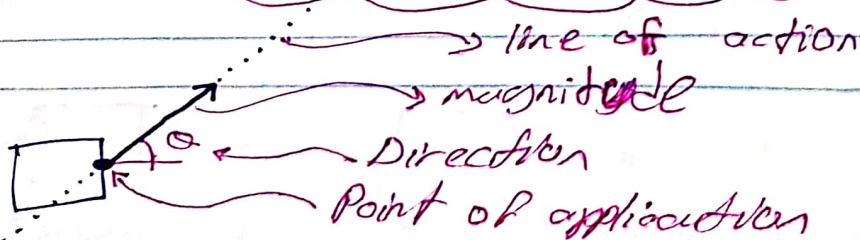 line of action
magnitude
θ
Direction
Point of application